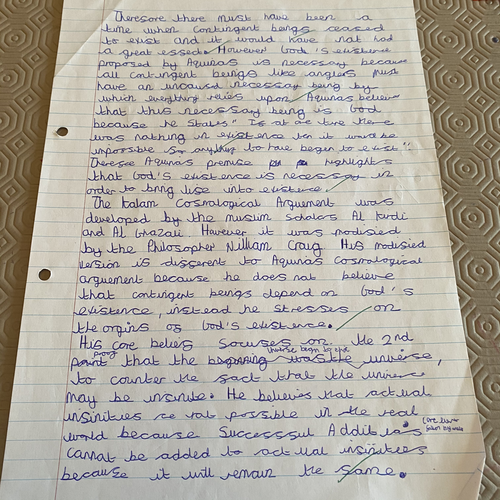 Theresore there must have been a
time when contingent beings ceased
to exist and it would have not had
a great essed. However God's existence
proposed by Aquinas is necessary because
all contingent beings like angles must
have an uncaused necessary being by
which everything relies upon. Aquinas believes
that this necessary being is God
because he states "Is at one time there
was nothing in existence then it would be
impossible for anything to have began to exist".
Theresore Aquinas premise highlights
that God's existence is necessary in
order to bring life into existence.
The Kalam Cosmological Arguement was
developed by the muslim scholars Al Kindi
and Al Ghazali. However it was modisied
by the Philosopher William Craig. His modisied
version is different to Aquinas Cosmological
arguement because he does not believe
that contingent beings depend on God's
existence, instead he stresses on
the orgins os God's existence.
His core beliefs socuses on the 2nd
point that the universe began to the universe,
to counter the sact that the universe
may be insinite. He believes that actual
insinities are not possible in the real
world because Successsul Additions
cannot be added to actual insinities
because it will remain the same.